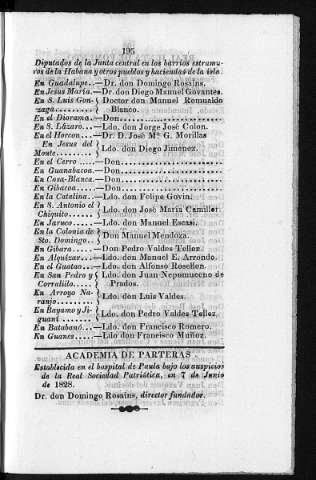 195
Diputados de la Junta central en los barrios estramu-
ros de la Habana y otros pueblos y haciendas de la isla.
En Guadalupe.—Dr. don Domingo Rosains.
En Jesus María.—Dr. don Diego Manuel Govantes.
En S. Luis Gon- } Doctor don Manuel Romualdo
zaga } Blanco.
En el Diorama.—Don
En S. Lázaro.—Ldo. don Jorge José Colon.
En el Horcon.—Dr. D. José M.ª G. Morillas
En Jesus del
Monte. } Ldo. don Diego Jimenez.
En el Cerro—Don
En Guanabacoa—Don
En Casa-Blanca.—Don
En Gibacoa—Don
En la Catalina.—Ldo. don Felipe Govin.
En S. Antonio el
Chiquito } Ldo. don José María Camilleri
En Jaruco—Ldo. don Manuel Escasi.
En la Colonia de
Sto. Domingo. } Don Manuel Mendoza.
En Gibara—Don Pedro Valdes Tellez.
En Alquizar—Ldo. don Manuel E. Arrondo.
En el Guatao—Ldo. don Alfonso Rosellen.
En San Pedro y } Ldo. don Juan Nepomuceno de
Corralillo. } Prados.
En Arroyo Na-
ranjo } Ldo. don Luis Valdes.
En Bayamo y Ji-
guaní } Ldo. don Pedro Valdes Tellez.
En Batabanó—Ldo. don Francisco Romero.
En Guanes—Ldo. don Francisco Muñoz.
ACADEMIA DE PARTERAS
Establecida en el hospital de Paula bajo los auspicios
de la Real Sociedad Patriótica, en 7 de Junio
de 1828.
Dr. don Domingo Rosains, director fundador.